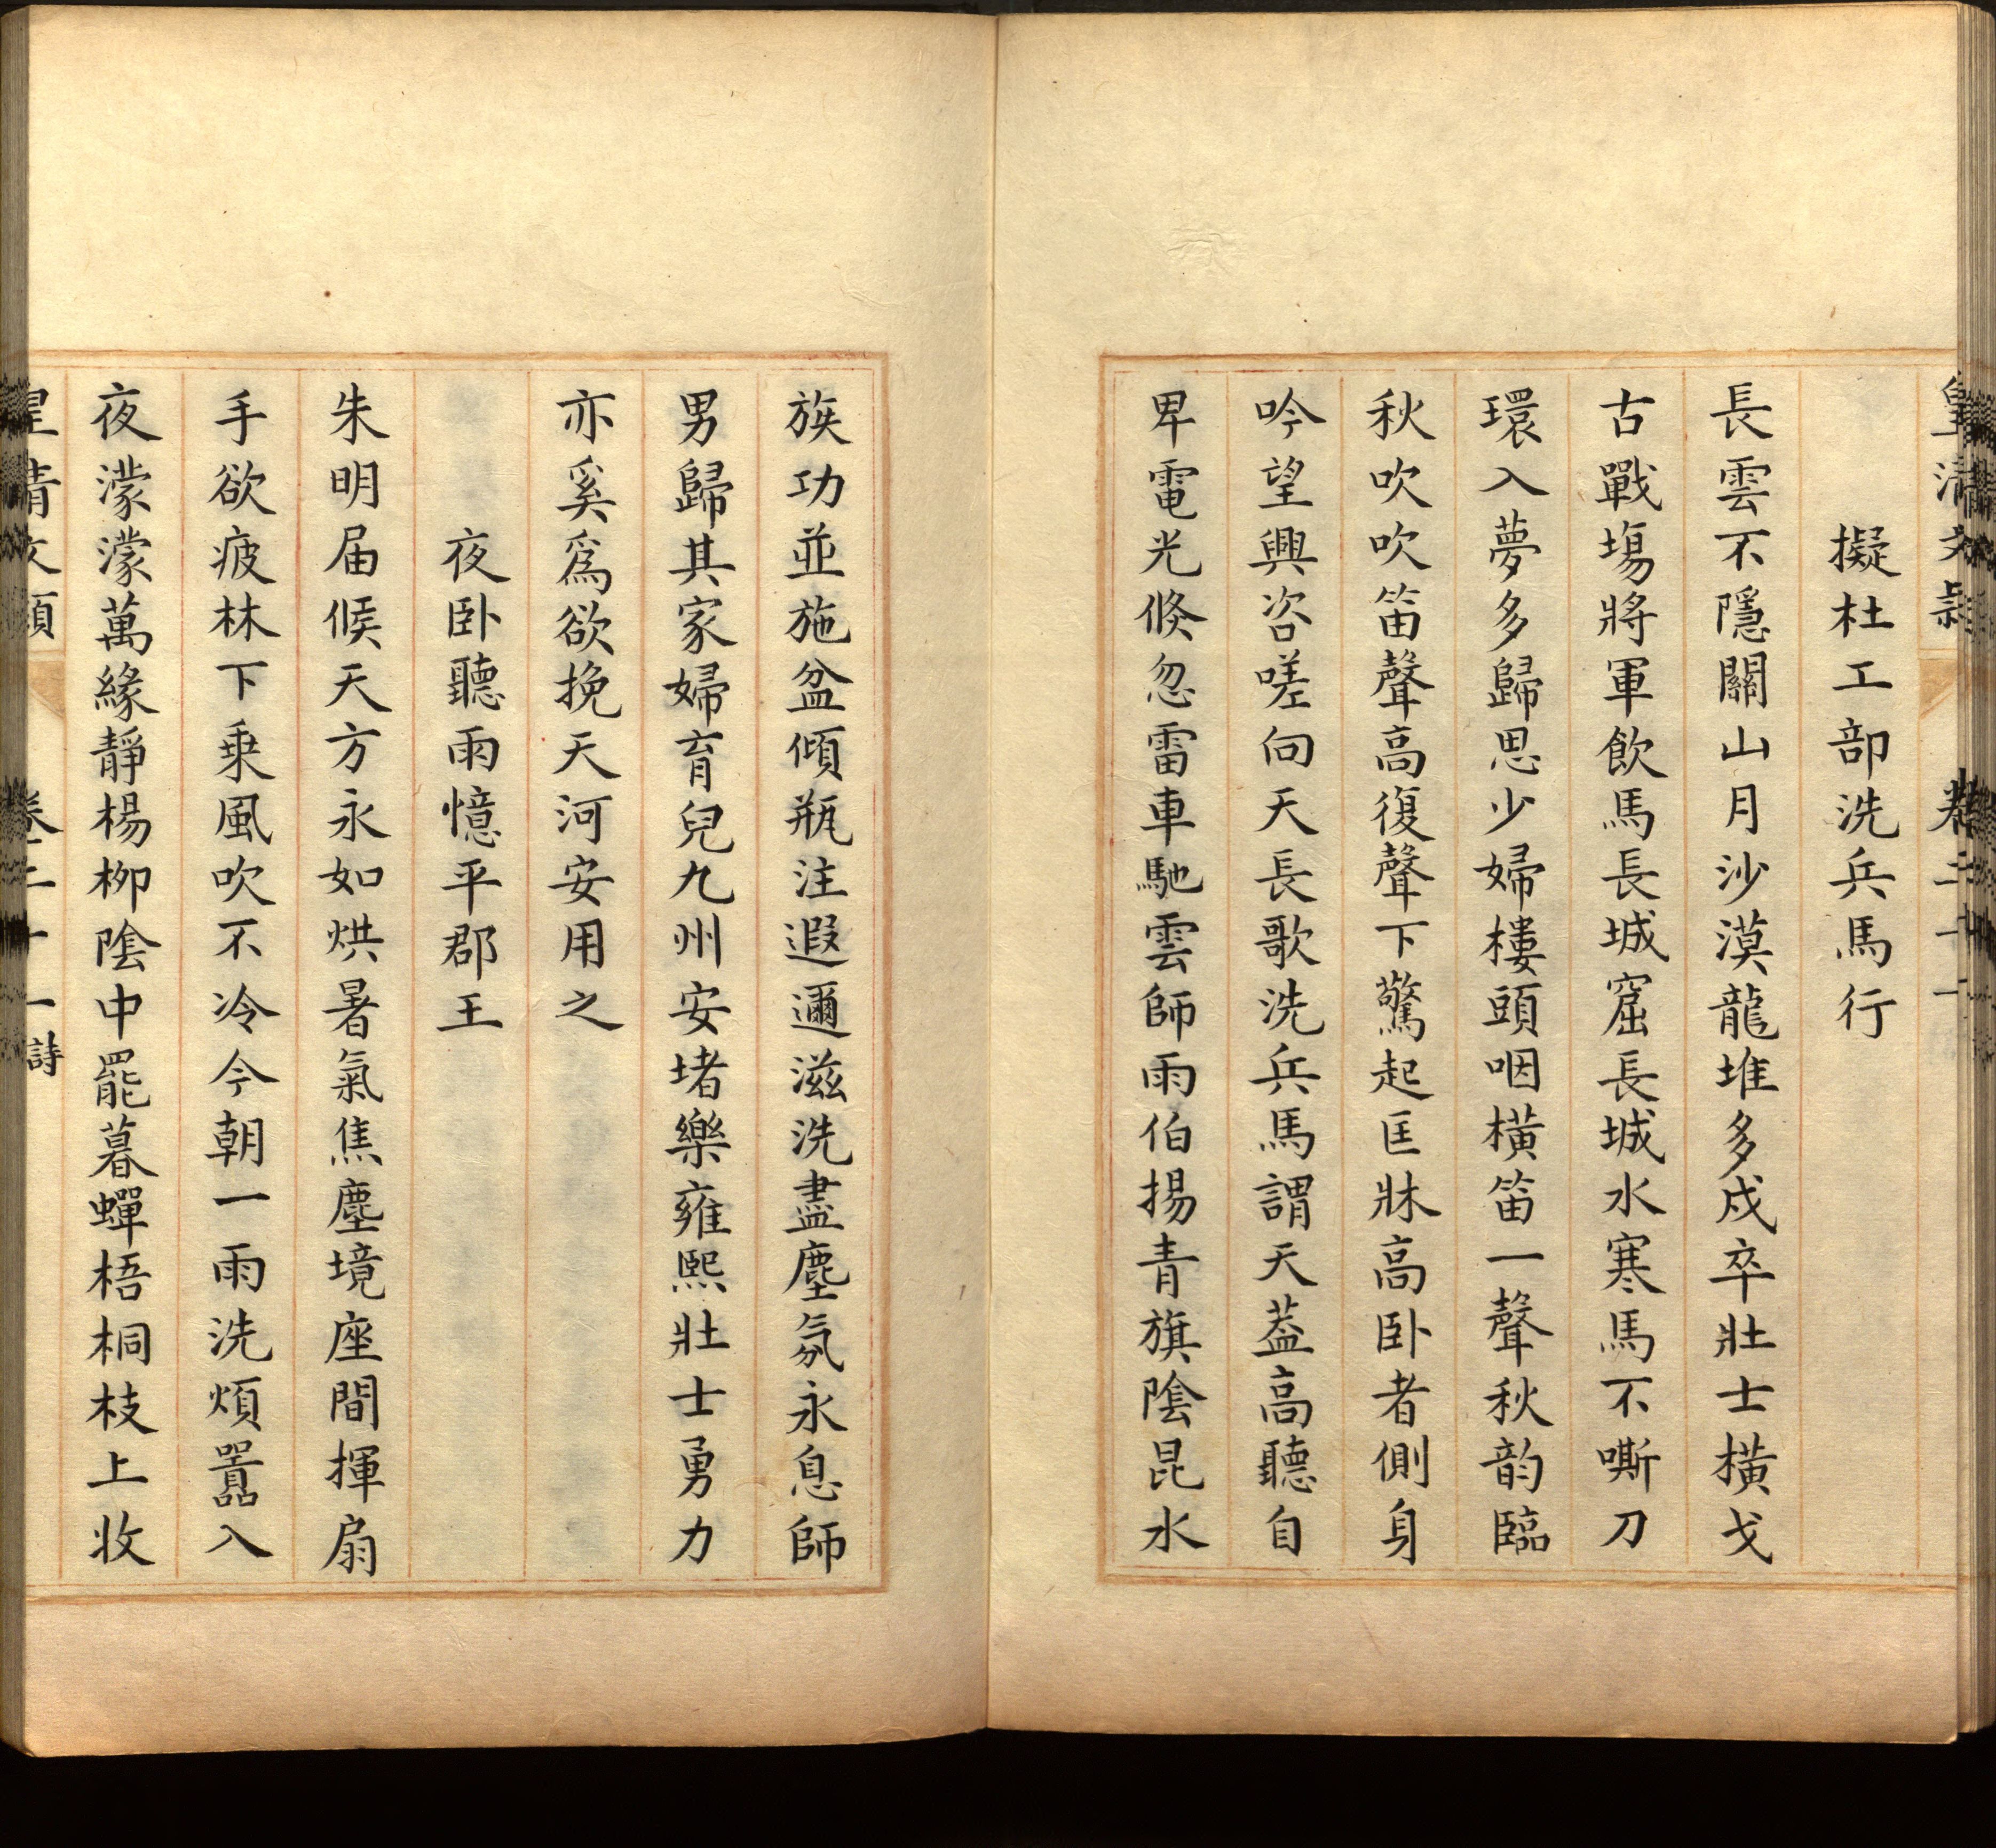 皇清文頴 卷二十一
擬杜工部洗兵馬行
長雲不隱關山月沙漠龍堆多戍卒壯士橫戈
古戰塲將軍飲馬長城窟長城水寒馬不嘶刀
環入夢多歸思少婦樓頭咽橫笛一聲秋韵臨
秋吹吹笛聲高復聲下驚起匡牀高卧者側身
吟望興咨嗟向天長歌洗兵馬謂天葢高聽自
卑電光倐忽雷車馳雲師雨伯揚青旗陰昆水
族功並施盆傾瓶注遐邇滋洗盡塵氛永息師
男歸其家婦育兒九州安堵樂雍熙壯士勇力
亦奚爲欲挽天河安用之
夜卧聽雨憶平郡王
朱明届候天方永如烘暑氣焦塵境座間揮扇
手欲疲林下乗風吹不冷今朝一雨洗煩囂入
夜濛濛萬緣靜楊柳陰中罷暮蟬梧桐枝上收
皇清文頴 卷二十一 詩